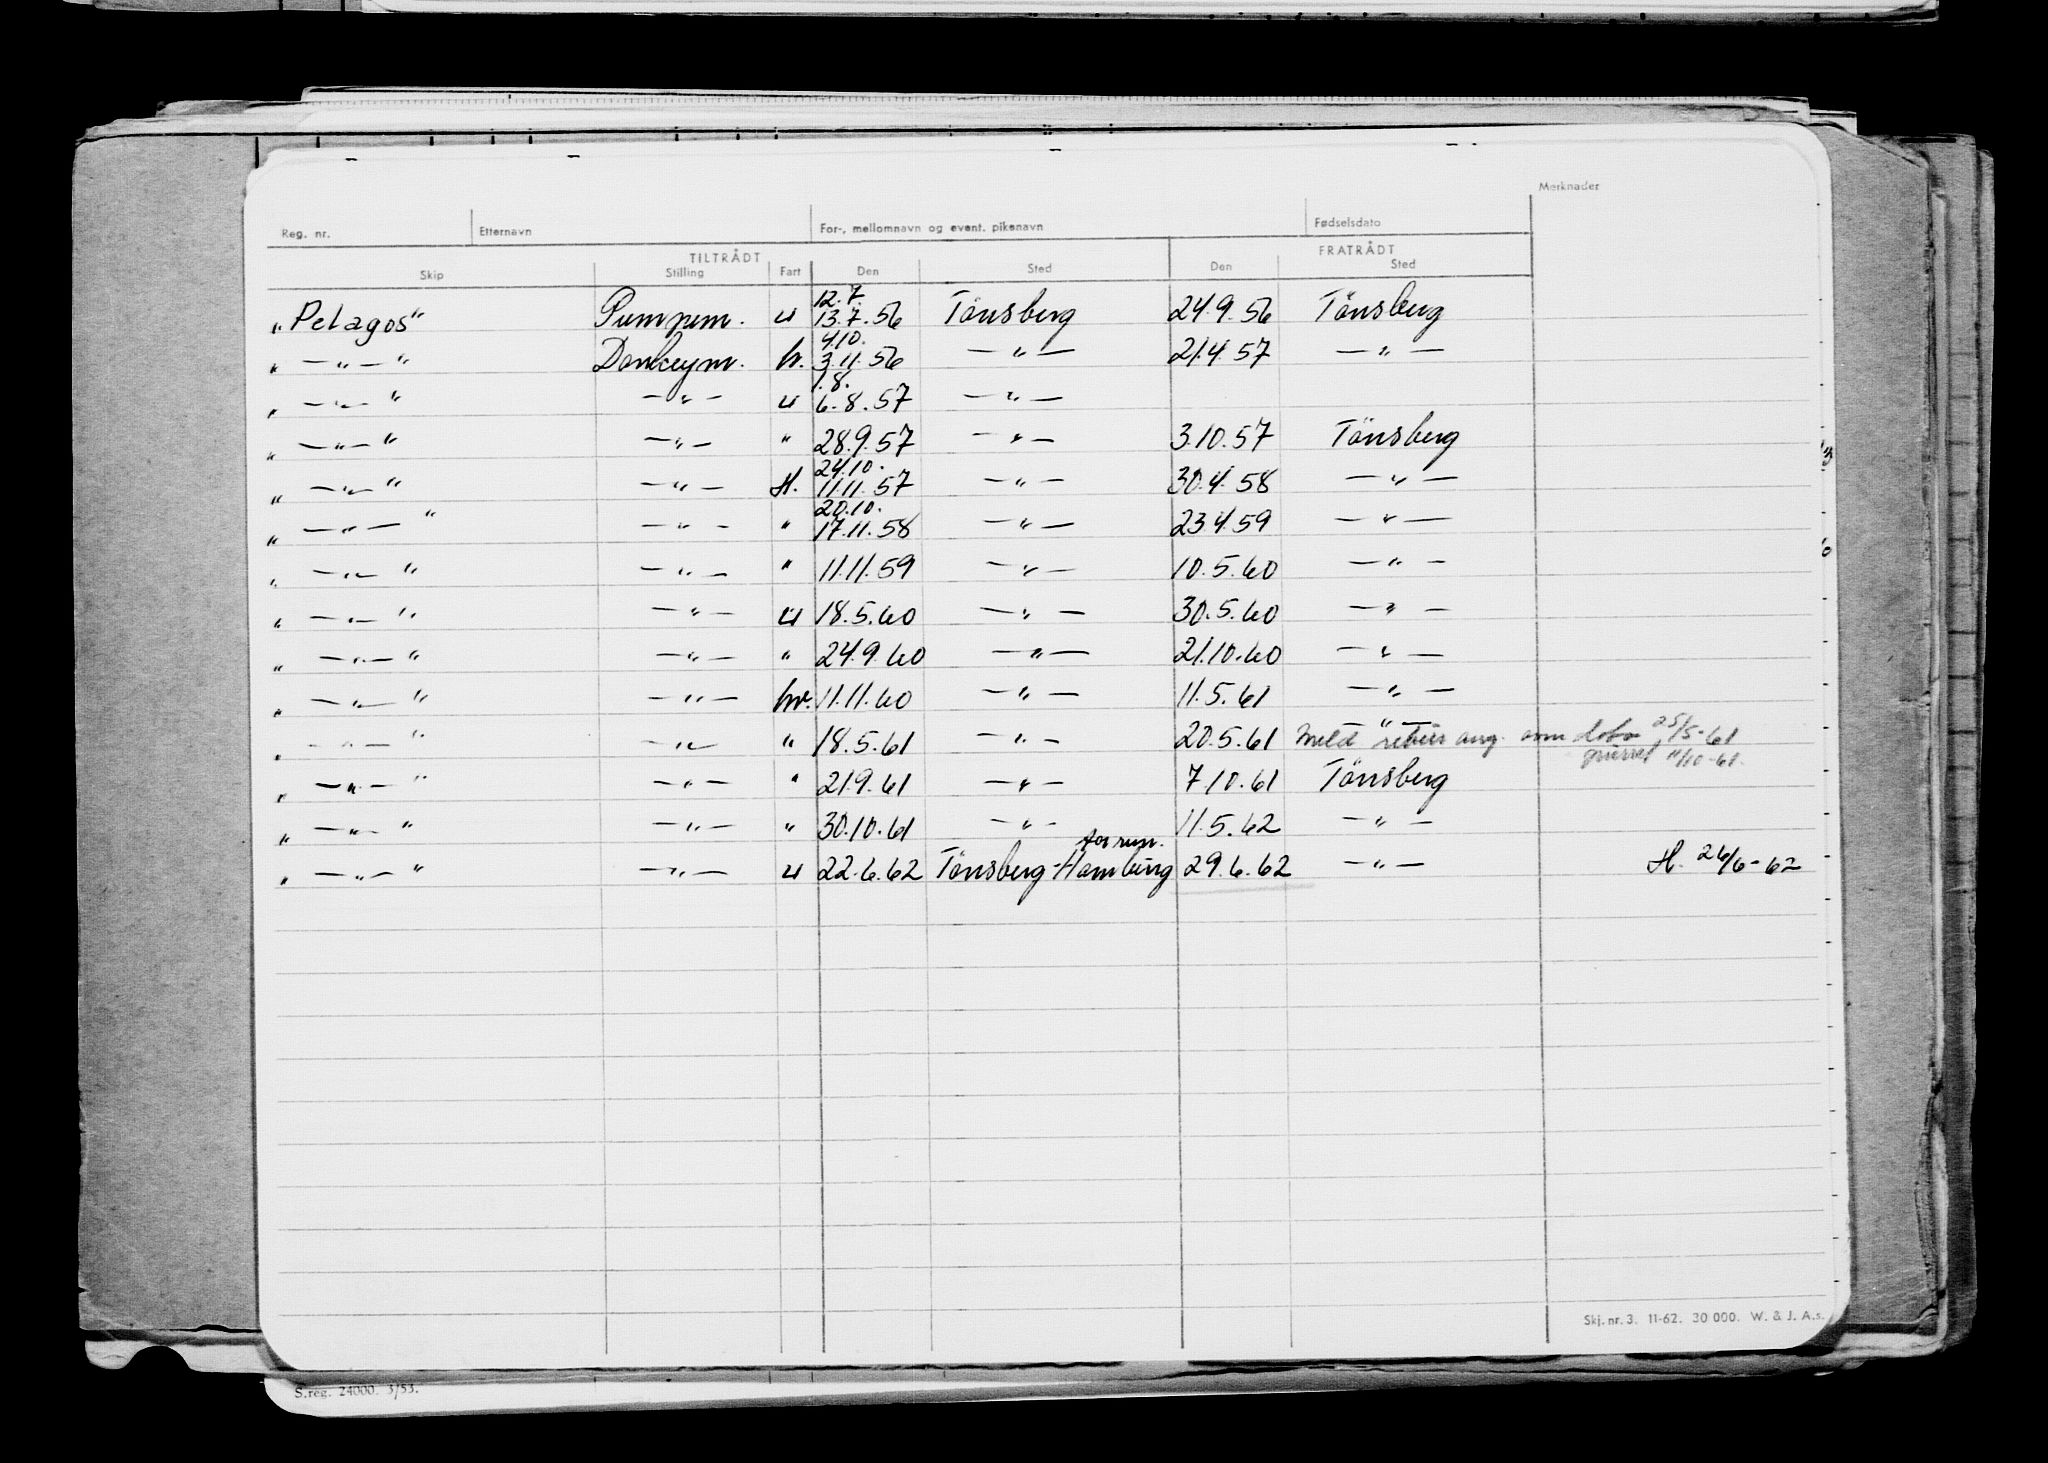 Merknader
Reg. nr. Etternavn For-, mellomnavn og event. pikenavn Fødselsdato
TILTRÅDT FRATRÅDT
Skip Stilling Fart Den Sted Den Sted
"Pelagos" Pumpem. u 12.7. 13.7.56 Tönsberg 24.9.56 Tönsberg
" —"— " Donkeym. hv. 4.10. 3.11.56 —"— 21.4.57 —"—
" —"— " —"— u 1.8. 6.8.57 —"—
" —"— " —"— " 28.9.57 —"— 3.10.57 Tönsberg
" —"— " —"— H. 24.10. 11.11.57 —"— 30.4.58 —"—
" —"— " —"— " 20.10. 17.11.58 —"— 23.4.59 —"—
" —"— " —"— " 11.11.59 —"— 10.5.60 —"—
" —"— " —"— u 18.5.60 —"— 30.5.60 —"—
" —"— " —"— " 24.9.60 —"— 21.10.60 —"—
" —"— " —"— hv. 11.11.60 —"— 11.5.61 —"—
" —"— " —"— " 18.5.61 —"— 20.5.61 —"— Meld retur ang. som 25/5-61
11/10-61.
" —"— " —"— " 21.9.61 —"— 7.10.61 Tönsberg
" —"— " —"— " 30.10.61 —"— 11.5.62 —"—
for run.
" —"— " —"— u 22.6.62 Tönsberg-Hamburg 29.6.62 —"— H. 26/6-62
Skj. nr. 3. 11-62. 30 000. W. & J. A.s.
S.reg. 24000. 3/53.